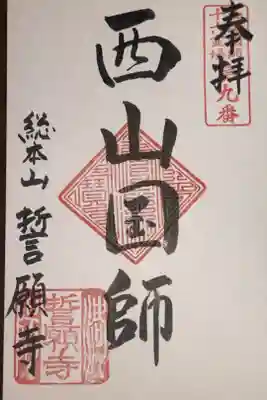 奉拝
九番
西山国師
総本山 誓願寺
誓願寺